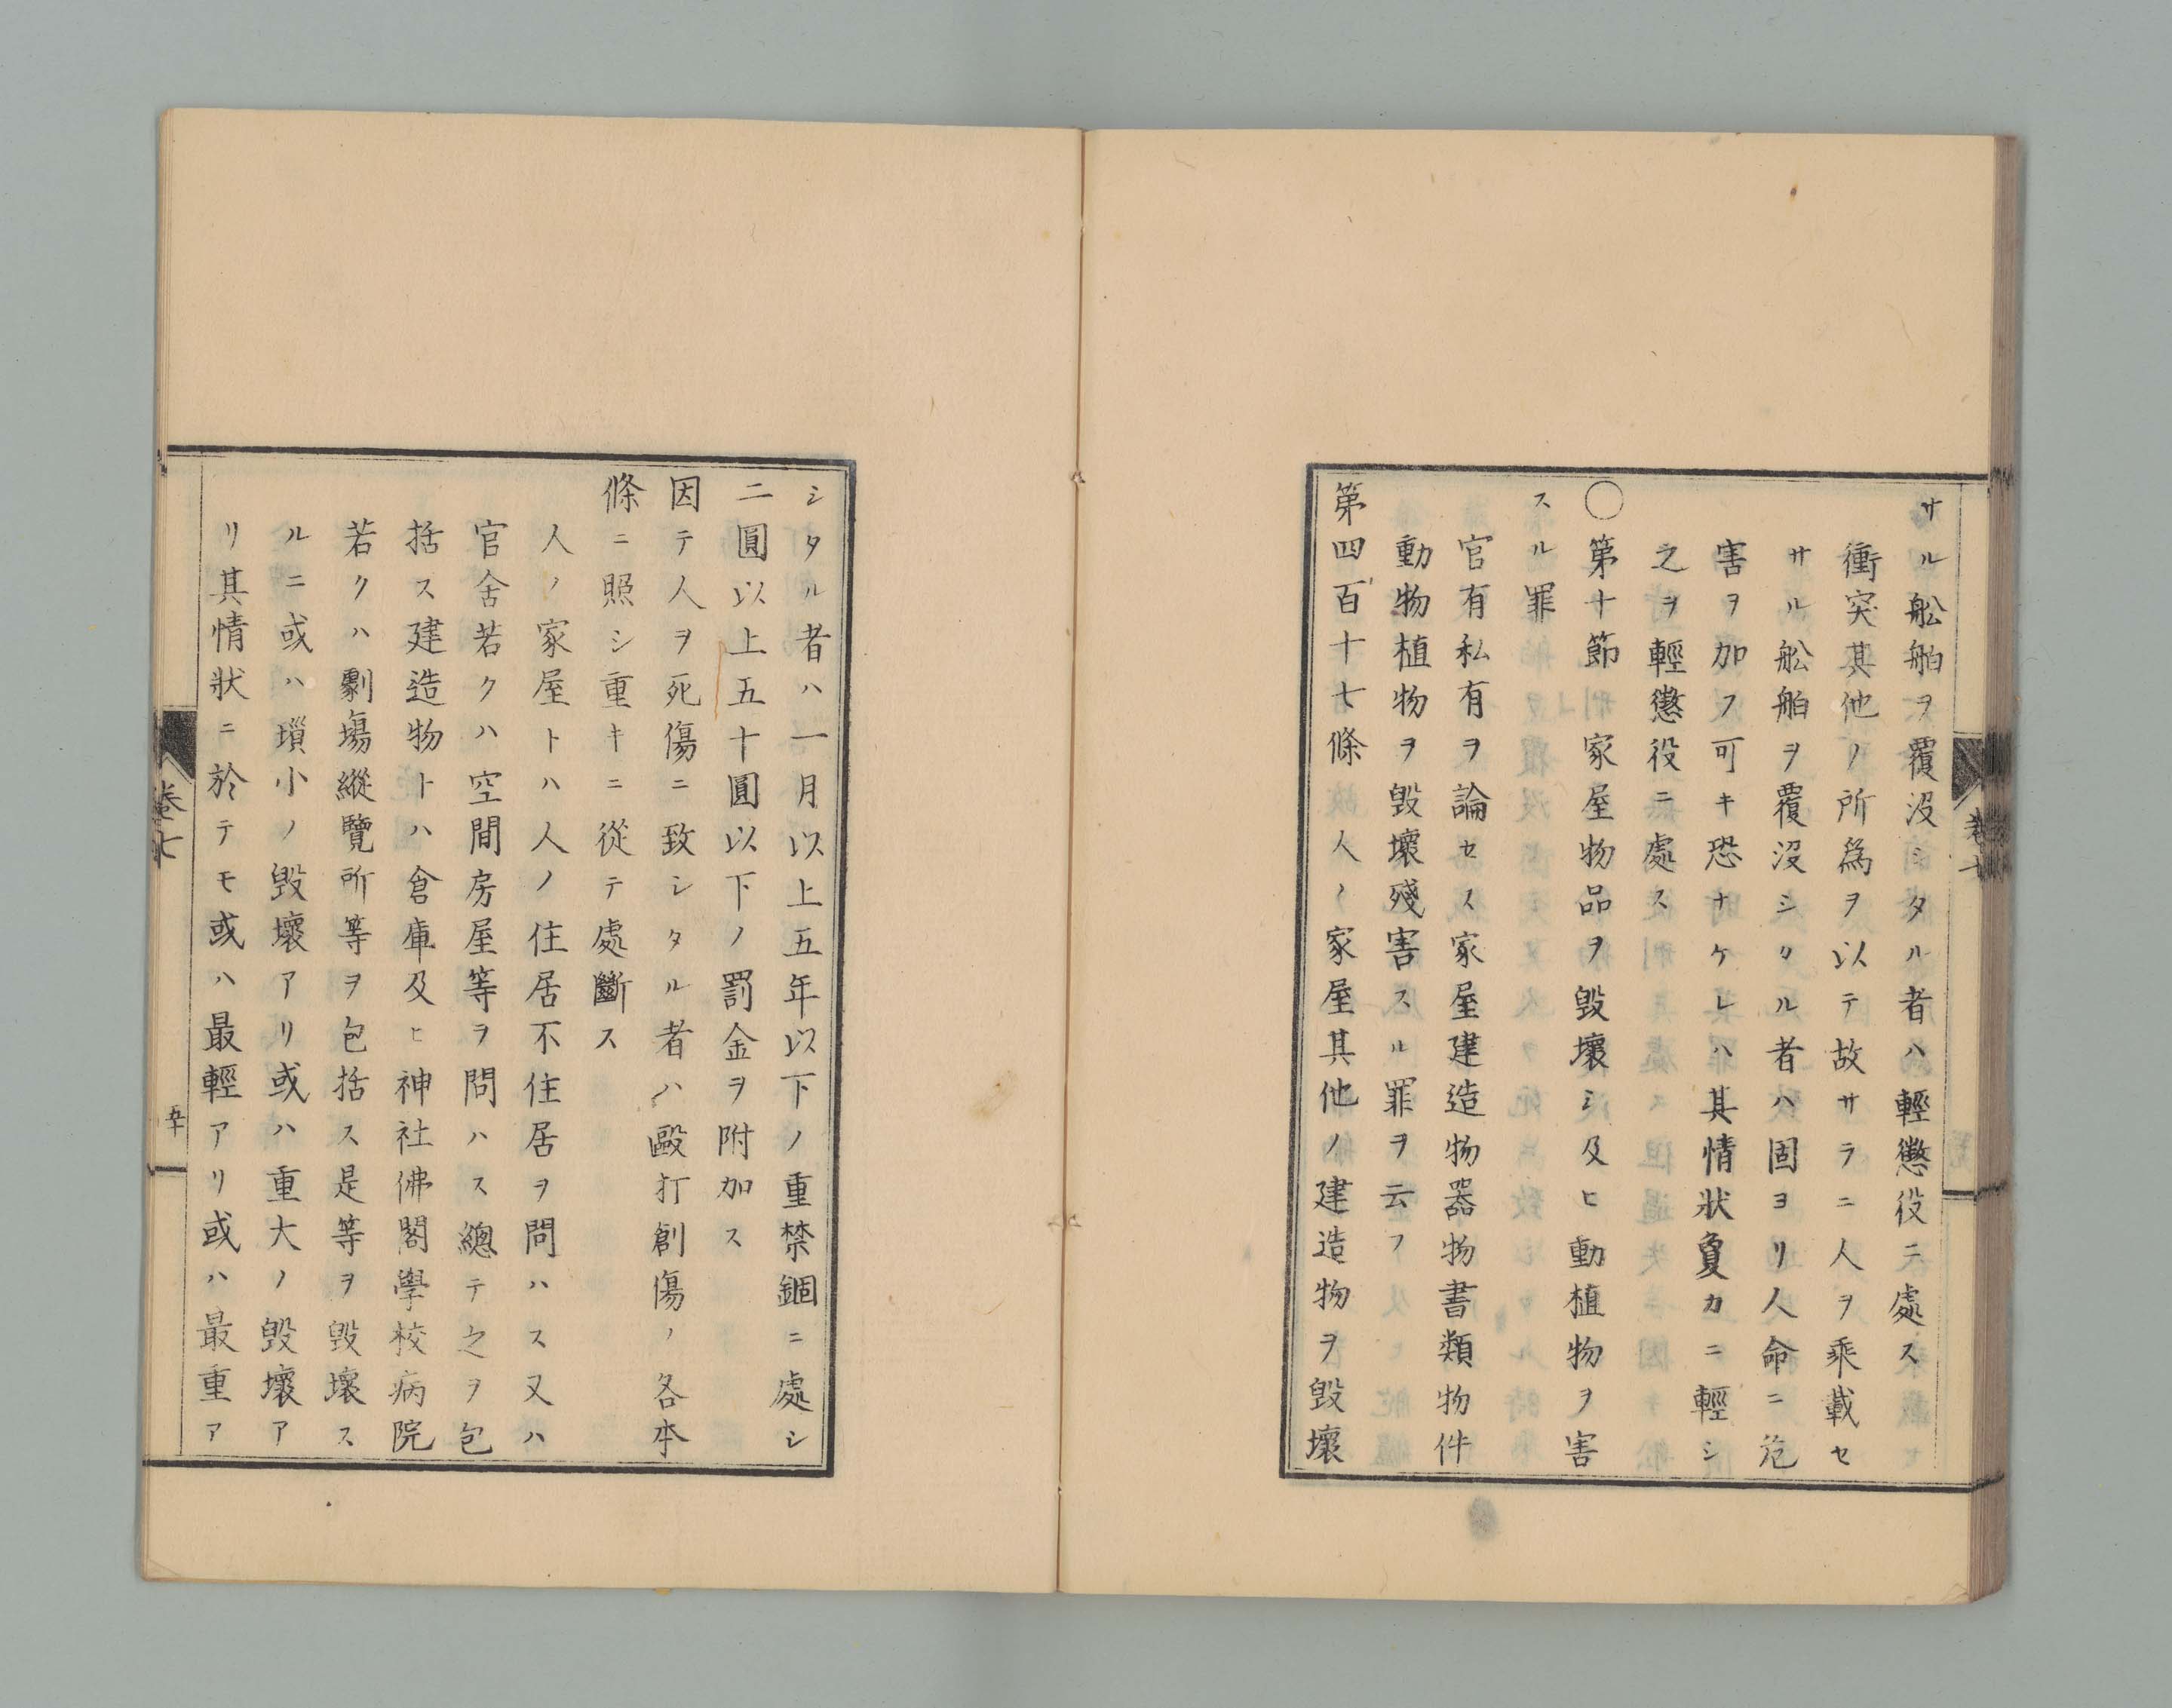 サル舩舶ヲ覆没シタル者ハ輕懲役ニ處ス
衝突其他ノ所為ヲ以テ故サラニ人ヲ乘載セ
サル舩舶ヲ覆没シタル者ハ固ヨリ人命ニ危
害ヲ加フ可キ恐ナケレハ其情狀敻カニ輕シ
之ヲ輕懲役ニ處ス
○第十節家屋物品ヲ毀壞シ及ヒ動植物ヲ害
スル罪
官有私有ヲ論セス家屋建造物器物書類物件
動物植物ヲ毀壞殘害スル罪ヲ云フ
第四百十七條 人ノ家屋其他ノ建造物ヲ毀壞
シタル者ハ一月以上五年以下ノ重禁錮ニ處シ
二圓以上五十圓以下ノ罰金ヲ附加ス
因テ人ヲ死傷ニ致シタル者ハ毆打創傷ノ各本
條ニ照シ重キニ從テ處斷ス
人ノ家屋トハ人ノ住居不住居ヲ問ハス又ハ
官舍若クハ空間房屋等ヲ問ハス總テ之ヲ包
括ス建造物トハ倉庫及ヒ神社佛閣學校病院
若クハ劇場縱覽所等ヲ包括ス是等ヲ毀壞ス
ルニ或ハ瑣小ノ毀壞アリ或ハ重大ノ毀壞ア
リ其情狀ニ於テモ或ハ最輕アリ或ハ最重ア
卷七
五十